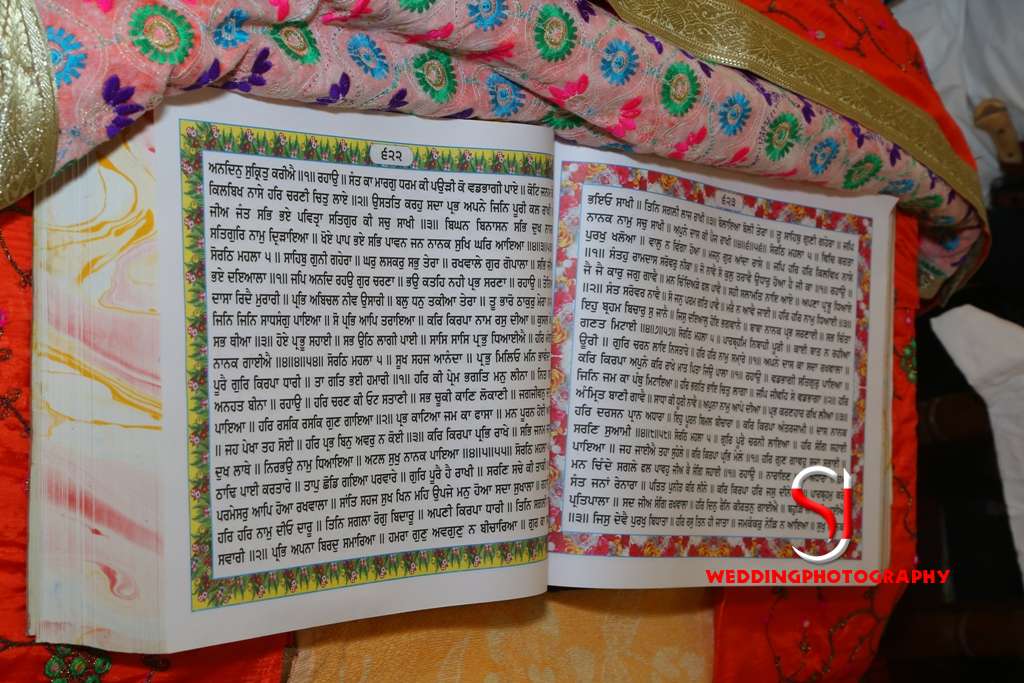 ੬੨੨
ਅਨਦਿਨੁ ਸੁਕ੍ਰਿਤੁ ਕਰੀਐ ॥੧॥ ਰਹਾਉ ॥ ਸੰਤ ਕਾ ਮਾਰਗੁ ਧਰਮ ਕੀ ਪਉੜੀ ਕੋ ਵਡਭਾਗੀ ਪਾਏ ॥ ਕੋਟਿ ਜਨਮ
ਕਿਲਬਿਖ ਨਾਸੇ ਹਰਿ ਚਰਣੀ ਚਿਤੁ ਲਾਏ ॥੨॥ ਉਸਤਤਿ ਕਰਹੁ ਸਦਾ ਪ੍ਰਭ ਅਪਨੇ ਜਿਨਿ ਪੂਰੀ ਕਲ ਰਾਖੀ
ਜੀਅ ਜੰਤ ਸਭਿ ਭਏ ਪਵਿਤ੍ਰਾ ਸਤਿਗੁਰ ਕੀ ਸਚੁ ਸਾਖੀ ॥੩॥ ਬਿਘਨ ਬਿਨਾਸਨ ਸਭਿ ਦੁਖ
ਸਤਿਗੁਰਿ ਨਾਮੁ ਦ੍ਰਿੜਾਇਆ ॥ ਖੋਏ ਪਾਪ ਭਏ ਸਭਿ ਪਾਵਨ ਜਨ ਨਾਨਕ ਸੁਖਿ ਘਰਿ ਆਇਆ
ਸੋਰਠਿ ਮਹਲਾ ੫ ॥ ਸਾਹਿਬੁ ਗੁਨੀ ਗਹੇਰਾ ॥ ਘਰੁ ਲਸਕਰੁ ਸਭੁ ਤੇਰਾ ॥ ਰਖਵਾਲੇ ਗੁਰ ਗੋਪਾਲਾ ॥ ਸਭਿ
ਭਏ ਦਇਆਲਾ ॥੧॥ ਜਪਿ ਅਨਦਿ ਰਹਉ ਗੁਰ ਚਰਣਾ ॥ ਭਉ ਕਤਹਿ ਨਹੀ ਪ੍ਰਭ ਸਰਣਾ ॥ ਰਹਾਉ ॥
ਦਾਸਾ ਰਿਦੈ ਮੁਰਾਰੀ ॥ ਪ੍ਰਭਿ ਅਬਿਚਲ ਨੀਵ ਉਸਾਰੀ ॥ ਬਲੁ ਧਨੁ ਤਕੀਆ ਤੇਰਾ ॥ ਤੂ ਭਾਰੋ ਠਾਕੁਰੁ ਮੇਰਾ
ਜਿਨਿ ਜਿਨਿ ਸਾਧਸੰਗੁ ਪਾਇਆ ॥ ਸੋ ਪ੍ਰਭਿ ਆਪਿ ਤਰਾਇਆ ॥ ਕਰਿ ਕਿਰਪਾ ਨਾਮ ਰਸੁ ਦੀਆ ॥ ਕੁਸਲ
ਸਭ ਥੀਆ ॥੩॥ ਹੋਏ ਪ੍ਰਭੂ ਸਹਾਈ ॥ ਸਭ ਉਠਿ ਲਾਗੀ ਪਾਈ ॥ ਸਾਸਿ ਸਾਸਿ ਪ੍ਰਭੁ ਧਿਆਈਐ ॥ ਹਰਿ
ਨਾਨਕ ਗਾਈਐ ॥੪॥੪॥੫੪॥ ਸੋਰਠਿ ਮਹਲਾ ੫ ॥ ਸੂਖ ਸਹਜ ਆਨੰਦਾ ॥ ਪ੍ਰਭੁ ਮਿਲਿਓ ਮਨਿ
ਪੂਰੈ ਗੁਰਿ ਕਿਰਪਾ ਧਾਰੀ ॥ ਤਾ ਗਤਿ ਭਈ ਹਮਾਰੀ ॥੧॥ ਹਰਿ ਕੀ ਪ੍ਰੇਮ ਭਗਤਿ ਮਨੁ ਲੀਨਾ ॥
ਅਨਹਤ ਬੀਨਾ ॥ ਰਹਾਉ ॥ ਹਰਿ ਚਰਣ ਕੀ ਓਟ ਸਤਾਣੀ ॥ ਸਭ ਚੂਕੀ ਕਾਣਿ ਲੋਕਾਣੀ ॥
ਪਾਇਆ ॥ ਹਰਿ ਰਸਕਿ ਰਸਕਿ ਗੁਣ ਗਾਇਆ ॥੨॥ ਪ੍ਰਭ ਕਾਟਿਆ ਜਮ ਕਾ ਫਾਸਾ ॥ ਮਨ ਪੂਰਨ
॥ ਜਹ ਪੇਖਾ ਤਹ ਸੋਈ ॥ ਹਰਿ ਪ੍ਰਭ ਬਿਨੁ ਅਵਰੁ ਨ ਕੋਈ ॥੩॥ ਕਰਿ ਕਿਰਪਾ ਪ੍ਰਭਿ ਰਾਖੇ ॥ ਸਭਿ ਜਨਮ
ਦੁਖ ਲਾਥੇ ॥ ਨਿਰਭਉ ਨਾਮੁ ਧਿਆਇਆ ॥ ਅਟਲ ਸੁਖੁ ਨਾਨਕ ਪਾਇਆ ॥੪॥੫॥੫੫॥ ਸੋਰਠਿ ਮਹਲਾ
ਠਾਢਿ ਪਾਈ ਕਰਤਾਰੇ ॥ ਤਾਪੁ ਛੋਡਿ ਗਇਆ ਪਰਵਾਰੇ ॥ ਗੁਰਿ ਪੂਰੈ ਹੈ ਰਾਖੀ ॥ ਸਰਣਿ ਸਚੇ ਕੀ ਤਾਕੀ
ਪਰਮੇਸਰੁ ਆਪਿ ਹੋਆ ਰਖਵਾਲਾ ॥ ਸਾਂਤਿ ਸਹਜ ਸੁਖ ਖਿਨ ਮਹਿ ਉਪਜੇ ਮਨੁ ਹੋਆ ਸਦਾ ਸੁਖਾਲਾ ॥
ਹਰਿ ਹਰਿ ਨਾਮੁ ਦੀਓ ਦਾਰੂ ॥ ਤਿਨਿ ਸਗਲਾ ਰੋਗੁ ਬਿਦਾਰੂ ॥ ਅਪਣੀ ਕਿਰਪਾ ਧਾਰੀ ॥ ਤਿਨਿ ਸਗਲੀ
ਸਵਾਰੀ ॥੨॥ ਪ੍ਰਭਿ ਅਪਨਾ ਬਿਰਦੁ ਸਮਾਰਿਆ ॥ ਹਮਰਾ ਗੁਣੁ ਅਵਗੁਣੁ ਨ ਬੀਚਾਰਿਆ ॥ ਗੁਰ ਕਾ
੬੨੩
ਭਇਓ ਸਾਖੀ ॥ ਤਿਨਿ ਸਗਲੀ ਲਾਜ ਰਾਖੀ ॥੩॥ ਬੋਲਾਇਆ ਬੋਲੀ ਤੇਰਾ ॥ ਤੂ ਸਾਹਿਬੁ ਗੁਣੀ ਗਹੇਰਾ ॥ ਜਪਿ
ਨਾਨਕ ਨਾਮੁ ਸਚੁ ਸਾਖੀ ॥ ਅਪੁਨੇ ਦਾਸ ਕੀ ਪੈਜ ਰਾਖੀ ॥੪॥੬॥੫੬॥ ਸੋਰਠਿ ਮਹਲਾ ੫ ॥ ਵਿਚਿ ਕਰਤਾ
ਪੁਰਖੁ ਖਲੋਆ ॥ ਵਾਲੁ ਨ ਵਿੰਗਾ ਹੋਆ ॥ ਮਜਨੁ ਗੁਰ ਆਂਦਾ ਰਾਸੇ ॥ ਜਪਿ ਹਰਿ ਹਰਿ ਕਿਲਵਿਖ ਨਾਸੇ
॥੧॥ ਸੰਤਹੁ ਰਾਮਦਾਸ ਸਰੋਵਰੁ ਨੀਕਾ ॥ ਜੋ ਨਾਵੈ ਸੋ ਕੁਲੁ ਤਰਾਵੈ ਉਧਾਰੁ ਹੋਆ ਹੈ ਜੀ ਕਾ ॥੧॥ ਰਹਾਉ ॥
ਜੈ ਜੈ ਕਾਰੁ ਜਗੁ ਗਾਵੈ ॥ ਮਨ ਚਿੰਦਿਅੜੇ ਫਲ ਪਾਵੈ ॥ ਸਹੀ ਸਲਾਮਤਿ ਨਾਇ ਆਏ ॥ ਅਪਣਾ ਪ੍ਰਭੂ ਧਿਆਏ
॥੨॥ ਸੰਤ ਸਰੋਵਰ ਨਾਵੈ ॥ ਸੋ ਜਨੁ ਪਰਮ ਗਤਿ ਪਾਵੈ ॥ ਮਰੈ ਨ ਆਵੈ ਜਾਈ ॥ ਹਰਿ ਹਰਿ ਨਾਮੁ ਧਿਆਈ ॥੩॥
ਇਹੁ ਬ੍ਰਹਮ ਬਿਚਾਰੁ ਸੁ ਜਾਨੈ ॥ ਜਿਸੁ ਦਇਆਲੁ ਹੋਇ ਭਗਵਾਨੈ ॥ ਬਾਬਾ ਨਾਨਕ ਪ੍ਰਭ ਸਰਣਾਈ ॥ ਸਭ ਚਿੰਤਾ
ਗਣਤ ਮਿਟਾਈ ॥੪॥੭॥੫੭॥ ਸੋਰਠਿ ਮਹਲਾ ੫ ॥ ਪਾਰਬ੍ਰਹਮਿ ਨਿਬਾਹੀ ਪੂਰੀ ॥ ਕਾਈ ਬਾਤ ਨ ਰਹੀਆ
ਊਰੀ ॥ ਗੁਰਿ ਚਰਨ ਲਾਇ ਨਿਸਤਾਰੇ ॥ ਹਰਿ ਹਰਿ ਨਾਮੁ ਸਮ੍ਹਾਰੇ ॥੧॥ ਅਪਨੇ ਦਾਸ ਕਾ ਸਦਾ ਰਖਵਾਲਾ ॥
ਕਰਿ ਕਿਰਪਾ ਅਪੁਨੇ ਕਰਿ ਰਾਖੇ ਮਾਤ ਪਿਤਾ ਜਿਉ ਪਾਲਾ ॥੧॥ ਰਹਾਉ ॥ ਵਡਭਾਗੀ ਸਤਿਗੁਰੁ ਪਾਇਆ ॥
ਜਿਨਿ ਜਮ ਕਾ ਪੰਥੁ ਮਿਟਾਇਆ ॥ ਹਰਿ ਭਗਤਿ ਭਾਇ ਚਿਤੁ ਲਾਗਾ ॥ ਜਪਿ ਜੀਵਹਿ ਸੇ ਵਡਭਾਗਾ ॥੨॥ ਹਰਿ
ਅੰਮ੍ਰਿਤ ਬਾਣੀ ਗਾਵੈ ॥ ਸਾਧਾ ਕੀ ਧੂਰੀ ਨਾਵੈ ॥ ਅਪੁਨਾ ਨਾਮੁ ਆਪੇ ਦੀਆ ॥ ਪ੍ਰਭ ਕਰਣਹਾਰ ਰਖਿ ਲੀਆ ॥੩॥
ਹਰਿ ਦਰਸਨ ਪ੍ਰਾਨ ਅਧਾਰਾ ॥ ਇਹੁ ਪੂਰਨ ਬਿਮਲ ਬੀਚਾਰਾ ॥ ਕਰਿ ਕਿਰਪਾ ਅੰਤਰਜਾਮੀ ॥ ਦਾਸ ਨਾਨਕ
ਸਰਣਿ ਸੁਆਮੀ ॥੪॥੮॥੫੮॥ ਸੋਰਠਿ ਮਹਲਾ ੫ ॥ ਗੁਰਿ ਪੂਰੈ ਚਰਨੀ ਲਾਇਆ ॥ ਹਰਿ ਸੰਗਿ ਸਹਾਈ
ਪਾਇਆ ॥ ਜਹ ਜਾਈਐ ਤਹਾ ਸੁਹੇਲੇ ॥ ਕਰਿ ਕਿਰਪਾ ਪ੍ਰਭਿ ਮੇਲੇ ॥੧॥ ਹਰਿ ਗੁਣ ਗਾਵਹੁ ਸਦਾ ਸੁਭਾਈ ॥
ਮਨ ਚਿੰਦੇ ਸਗਲੇ ਫਲ ਪਾਵਹੁ ਜੀਅ ਕੈ ਸੰਗਿ ਸਹਾਈ ॥੧॥ ਰਹਾਉ ॥ ਨਾਰਾਇਣ
ਸੰਤ ਜਨਾਂ ਰੇਨਾਰਾ ॥ ਪਤਿਤ ਪੁਨੀਤ ਕਰਿ ਲੀਨੇ ॥ ਕਰਿ ਕਿਰਪਾ ਹਰਿ ਜਸੁ ਦੀਨੇ
ਪ੍ਰਤਿਪਾਲਾ ॥ ਸਦ ਜੀਅ ਸੰਗਿ ਰਖਵਾਲਾ ॥ ਹਰਿ ਦਿਨੁ ਰੈਨਿ ਕੀਰਤਨੁ ਗਾਈਐ ॥ ਬਹੁੜਿ
॥੩॥ ਜਿਸੁ ਦੇਵੈ ਪੁਰਖੁ ਬਿਧਾਤਾ ॥ ਹਰਿ ਰਸੁ ਤਿਨ ਹੀ ਜਾਤਾ ॥ ਜਮਕੰਕਰੁ ਨੇੜਿ ਨ ਆਇਆ ॥ ਸੁਖੁ
SJ
WEDDINGPHOTOGRAPHY